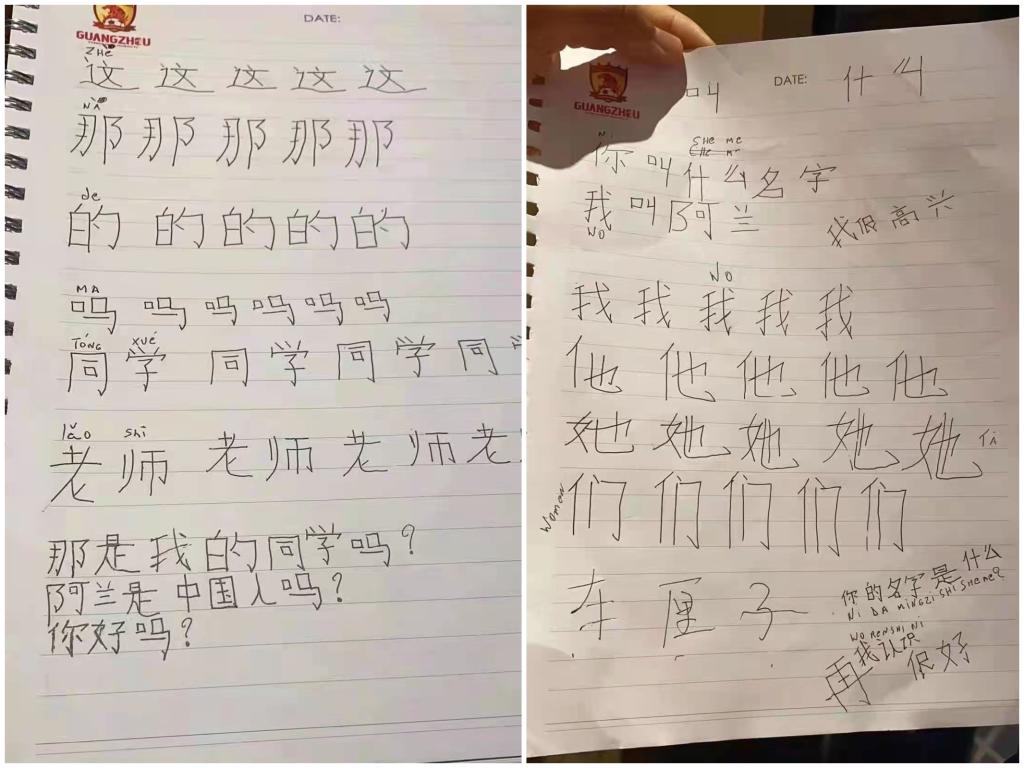 GUANGZHOU
DATE:
ZHÈ
这 这 这 这 这
NÀ
那 那 那 那 那
de
的 的 的 的 的
MA
吗 吗 吗 吗 吗 吗
TÓNG XUÉ
同 学 同 学 同 学 同
lǎo shī
老 师 老 师 老 师 老
那是我的同学吗?
阿兰是中国人吗?
你好吗?
GUANGZHOU
叫
DATE:
什 么
Ni SHE ME
你 叫 什 么 名 字
我 叫 阿 兰
WO
我很高兴
WO
我 我 我 我 我
他 他 他 他 他
她 她 她 她 她 TA
women
们 们 们 们 们
车 厘 子
你的名字是什么
Ni DA MiNGZi SHi SHEME?
WO RENSHi Ni
我认识
再 很好